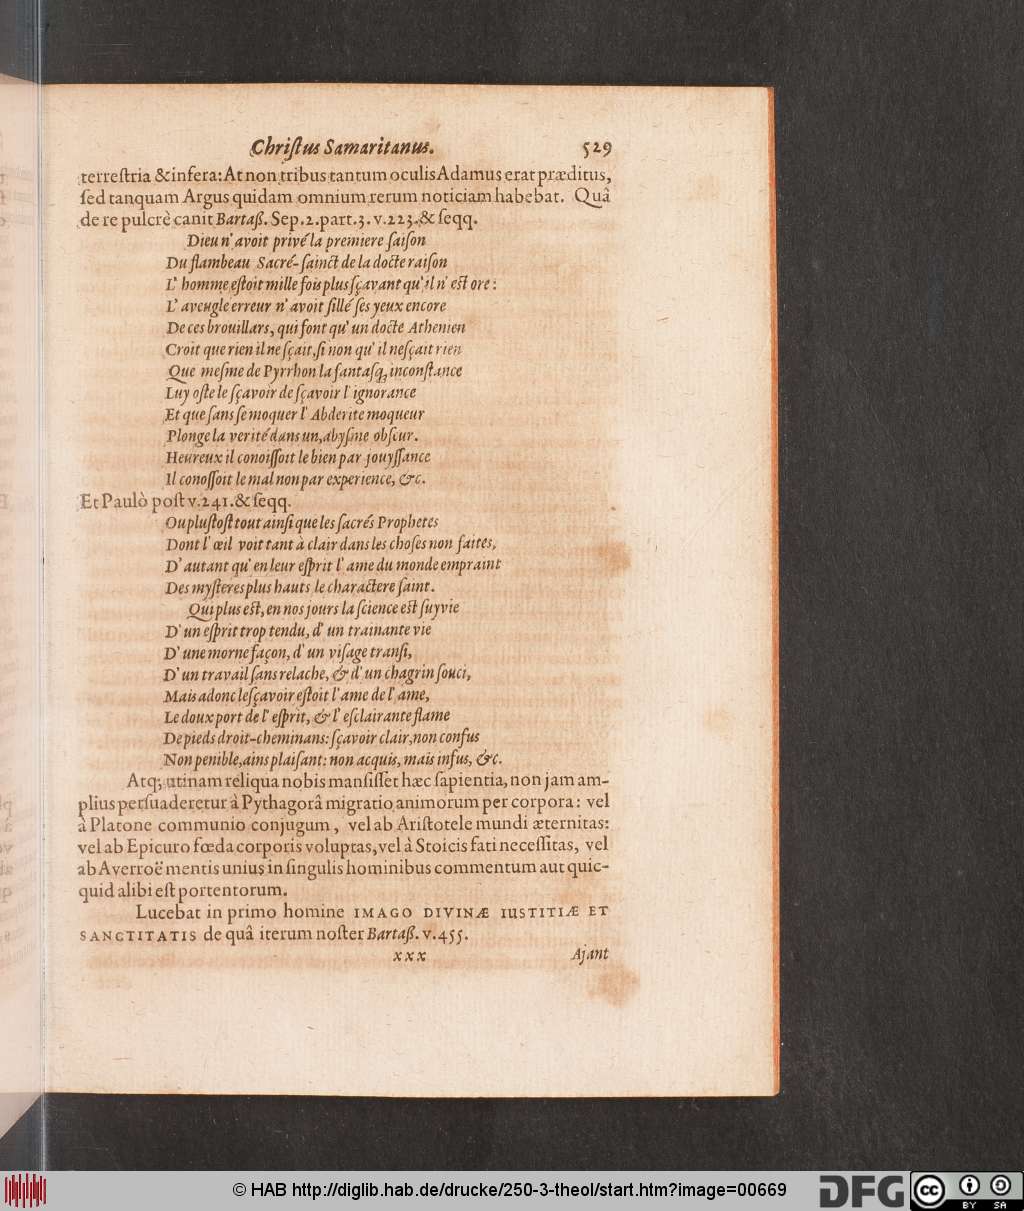 Chriſtus Samaritanus. 529
terreſtria & infera: At non tribus tantum oculis Adamus erat præditus,
ſed tanquam Argus quidam omnium rerum noticiam habebat. Quâ
de re pulcrè canit Bartaß. Sep. 2. part. 3. v. 223. & ſeqq.
Dieu n' avoit privé la premiere ſaiſon
Du flambeau Sacré-ſainct de la docte raiſon
L' homme eſtoit mille fois plus ſçavant qu' il n' eſt ore:
L' aveugle erreur n' avoit ſillé ſes yeux encore
De ces brouillars, qui font qu' un docte Athenien
Croit que rien il ne ſçait, ſi non qu' il ne ſçait rien
Que meſme de Pyrrhon la fantaſq; inconſtance
Luy oſte le ſçavoir de ſçavoir l' ignorance
Et que ſans ſe moquer l' Abderite moqueur
Plonge la verité dans un, abyſme obſcur.
Heureux il conoiſſoit le bien par jouyſſance
Il conoſſoit le mal non par experience, &c.
Et Paulò poſt v. 241. & ſeqq.
Ou pluſtoſt tout ainſi que les ſacrés Prophetes
Dont l' œil voit tant à clair dans les choſes non faites,
D' autant qu' en leur eſprit l' ame du monde empraint
Des myſteres plus hauts le charactere ſaint.
Qui plus eſt, en nos jours la ſcience eſt ſuyvie
D' un eſprit trop tendu, d' un trainante vie
D' une morne façon, d' un viſage tranſi,
D' un travail ſans relache, & d' un chagrin ſouci,
Mais adonc le ſçavoir eſtoit l' ame de l' ame,
Le doux port de l' eſprit, & l' eſclairante flame
De pieds droit-cheminans: ſçavoir clair, non confus
Non penible, ains plaiſant: non acquis, mais infus, &c.
Atq; utinam reliqua nobis manſiſſet hæc ſapientia, non jam am-
plius perſuaderetur à Pythagorâ migratio animorum per corpora: vel
à Platone communio conjugum, vel ab Ariſtotele mundi æternitas:
vel ab Epicuro fœda corporis voluptas, vel à Stoicis fati neceſſitas, vel
ab Averroë mentis unius in ſingulis hominibus commentum aut quic-
quid alibi eſt portentorum.
Lucebat in primo homine IMAGO DIVINÆ IUSTITIÆ ET
SANCTITATIS de quâ iterum noſter Bartaß. v. 455.
xxx Ajant
© HAB http://diglib.hab.de/drucke/250-3-theol/start.htm?image=00669
DFG
cc BY SA